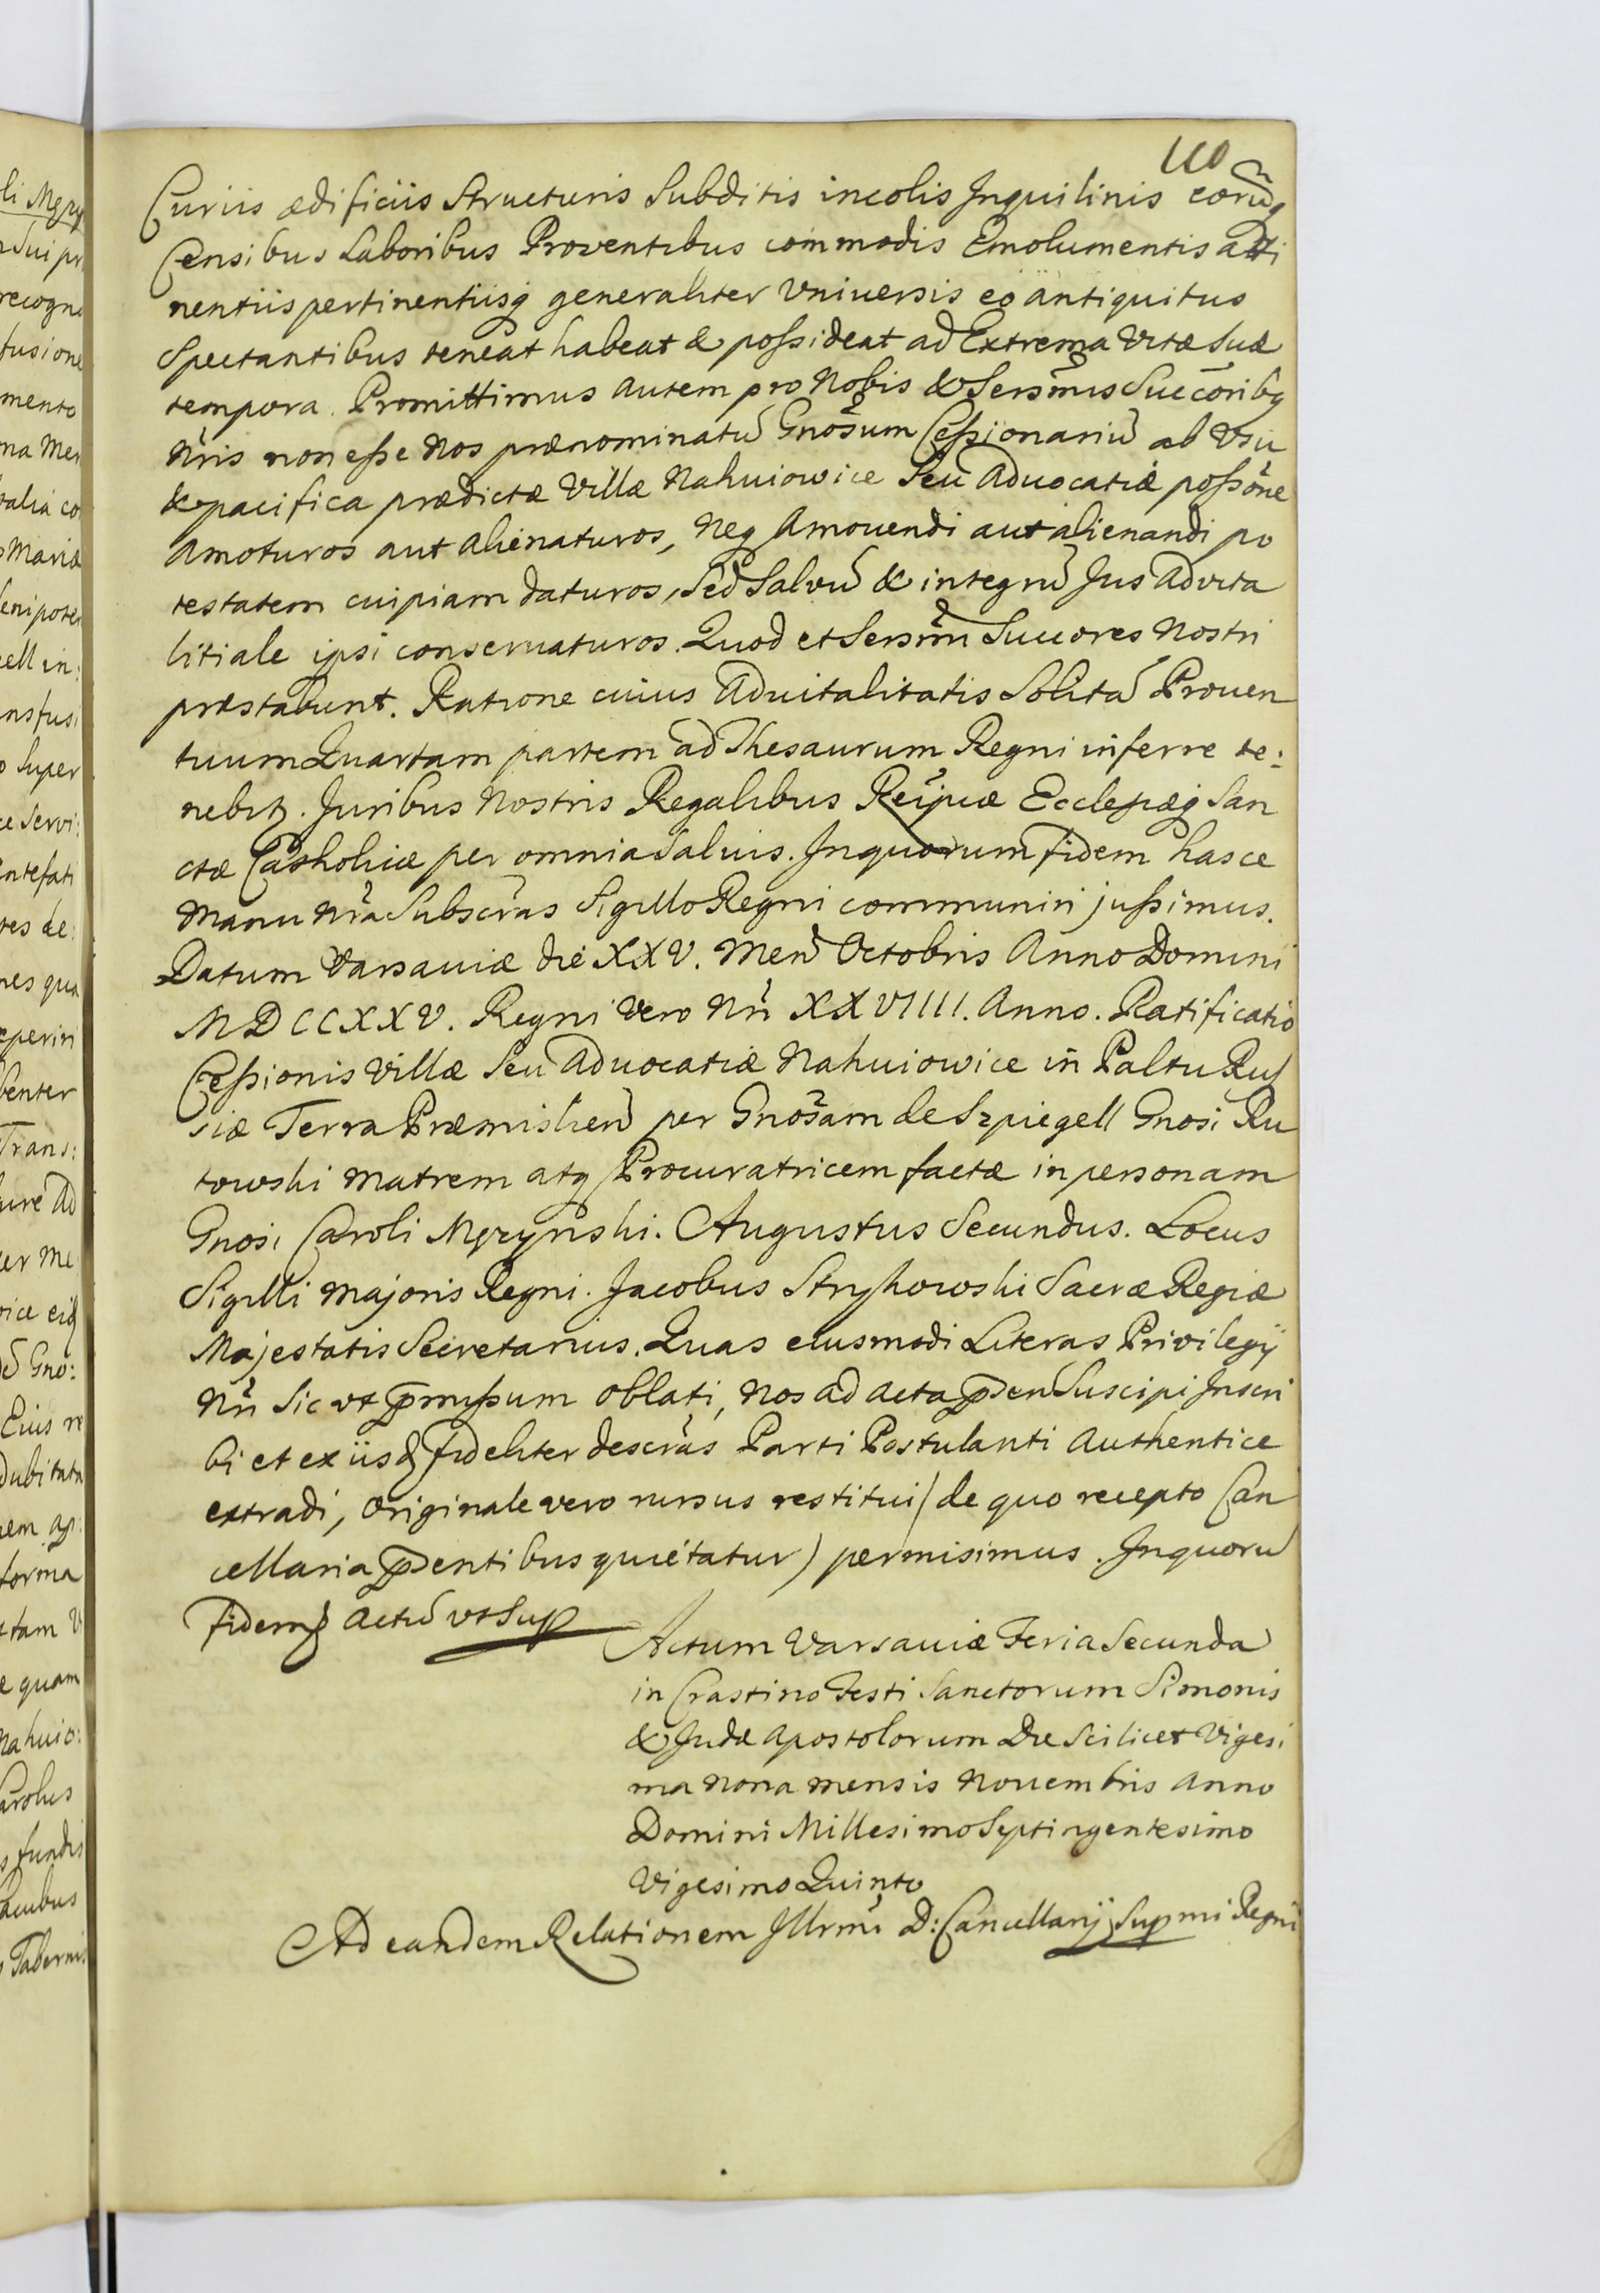 110
Curiis ædificiis Structuris Subditis incolis Inquilinis eorūq
Censibus Laboribus Proventibus commodis Emolumentis atti
nentiis pertinentiisq generaliter Vniuersis eò antiquitus
Spectantibus teneat habeat & poſsideat ad Extrema Vitæ Suæ
tempora. Promittimus autem pro Nobis & Serſmis Succoribq
Nris non eſse Nos prænominatū Gnosum Ceſsionariū ab Vsu
& pacifica prædictæ Villæ Nahuiowice Seu Aduocatiæ poſsone
amoturos aut alienaturos, Neq Amouendi aut alienandi po
testatem cuipiam daturos, Sed Salvū & integrū Jus Advita
litiale ipsi conseruaturos. Quod et Serſmi Succores Nostri
præstabunt. Ratione cuius Aduitalitatis Solitā Prouen
tuum Quartam partem ad Thesaurum Regni inferre te:
nebit. Juribus Nostris Regalibus Reipuæ Eccleſiæq San
ctæ Catholicæ per omnia Saluis. In quorum fidem hasce
Manu Nra Subscras Sigillo Regni communiri juſsimus.
Datum Varsauiæ die XXV. Men Octobris Anno Domini
MDCCXXV. Regni Vero Nri XXVIIII. Anno. Ratificatio
Ceſsionis Villæ Seu Aduocatiæ Nahuiowice in Paltu Rus
siæ Terra Præmislien per Gnosam de Szpiegell Gnosi Ru
towski Matrem atq Procuratricem factæ in personam
Gnosi Caroli Mrzynski. Augustus Secundus. Locus
Sigilli Majoris Regni. Jacobus Stryhowski Sacræ Regiæ
Majestatis Secretarius. Quas eiusmodi Literas Privilegij
Nri Sic vt pmiſsum oblati, Nos ad acta pſen Suscipi Inscri
bi et ex iisd fideliter descras Parti Postulanti Authentice
extradi, originale vero rursus restitui (de quo recepto Can
cellaria pſentibus quiétatur) permisimus. In quorū
fidem Actū vt Sup
Actum Varsauiæ Feria Secunda
in Crastino Festi Sanctorum Simonis
& Judæ Apostolorum Die Scilicet Vigesi
ma Nona mensis Nouembris Anno
Domini Millesimo Septingentesimo
Vigesimo Quinto
Ad eandem Relationem Illrmi D: Cancellarij Supmi Regni